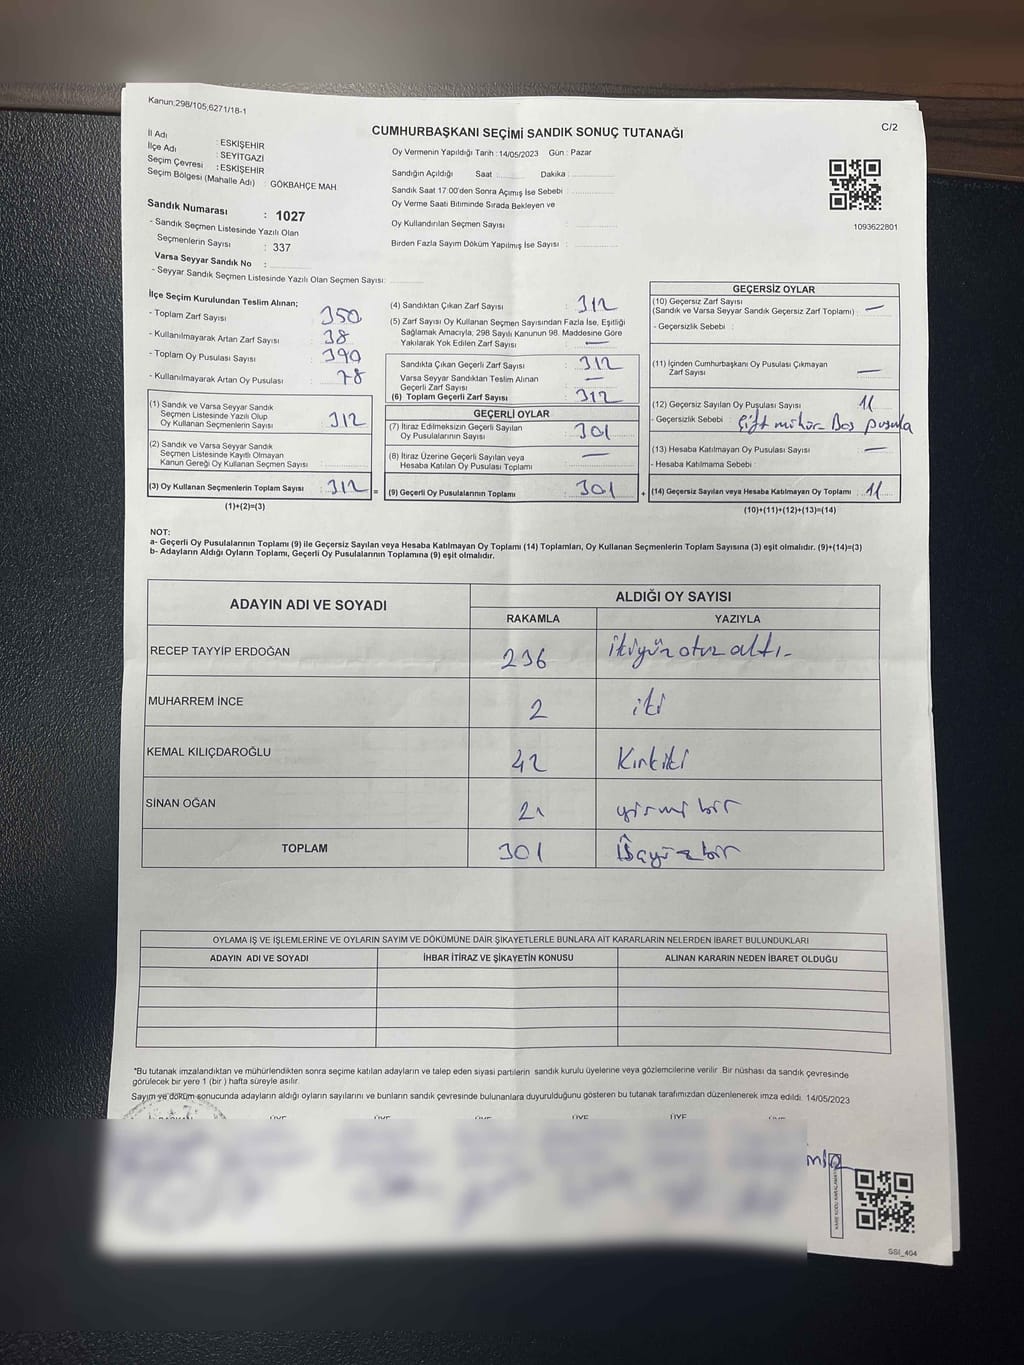 Kanun;298/105,6271/18-1
C/2
CUMHURBAŞKANI SEÇİMİ SANDIK SONUÇ TUTANAĞI
İl Adı : ESKİŞEHİR
İlçe Adı : SEYİTGAZİ
Seçim Çevresi : ESKİŞEHİR
Seçim Bölgesi (Mahalle Adı) : GÖKBAHÇE MAH.
Sandık Numarası : 1027
- Sandık Seçmen Listesinde Yazılı Olan
Seçmenlerin Sayısı : 337
Varsa Seyyar Sandık No :
- Seyyar Sandık Seçmen Listesinde Yazılı Olan Seçmen Sayısı:
Oy Vermenin Yapıldığı Tarih : 14/05/2023 Gün : Pazar
Sandığın Açıldığı Saat : Dakika :
Sandık Saat 17:00'den Sonra Açımış İse Sebebi :
Oy Verme Saati Bitiminde Sırada Bekleyen ve
Oy Kullandırılan Seçmen Sayısı :
Birden Fazla Sayım Döküm Yapılmış İse Sayısı :
1093622801
İlçe Seçim Kurulundan Teslim Alınan;
- Toplam Zarf Sayısı : 350
- Kullanılmayarak Artan Zarf Sayısı : 38
- Toplam Oy Pusulası Sayısı : 390
- Kullanılmayarak Artan Oy Pusulası : 78
(1) Sandık ve Varsa Seyyar Sandık
Seçmen Listesinde Yazılı Olup
Oy Kullanan Seçmenlerin Sayısı : 312
(2) Sandık ve Varsa Seyyar Sandık
Seçmen Listesinde Kayıtlı Olmayan
Kanun Gereği Oy Kullanan Seçmen Sayısı :
(3) Oy Kullanan Seçmenlerin Toplam Sayısı : 312 =
(1)+(2)=(3)
(4) Sandıktan Çıkan Zarf Sayısı : 312
(5) Zarf Sayısı Oy Kullanan Seçmen Sayısından Fazla İse, Eşitliği
Sağlamak Amacıyla; 298 Sayılı Kanunun 98. Maddesine Göre
Yakılarak Yok Edilen Zarf Sayısı : —
Sandıkta Çıkan Geçerli Zarf Sayısı : 312
Varsa Seyyar Sandıktan Teslim Alınan
Geçerli Zarf Sayısı : —
(6) Toplam Geçerli Zarf Sayısı : 312
GEÇERLİ OYLAR
(7) İtiraz Edilmeksizin Geçerli Sayılan
Oy Pusulalarının Sayısı : 301
(8) İtiraz Üzerine Geçerli Sayılan veya
Hesaba Katılan Oy Pusulası Toplamı : —
(9) Geçerli Oy Pusulalarının Toplamı : 301 +
GEÇERSİZ OYLAR
(10) Geçersiz Zarf Sayısı
(Sandık ve Varsa Seyyar Sandık Geçersiz Zarf Toplamı) : —
- Geçersizlik Sebebi :
(11) İçinden Cumhurbaşkanı Oy Pusulası Çıkmayan
Zarf Sayısı : —
(12) Geçersiz Sayılan Oy Pusulası Sayısı : 11
- Geçersizlik Sebebi : Çift mühür- Boş pusula
(13) Hesaba Katılmayan Oy Pusulası Sayısı : —
- Hesaba Katılmama Sebebi :
(14) Geçersiz Sayılan veya Hesaba Katılmayan Oy Toplamı : 11
(10)+(11)+(12)+(13)=(14)
NOT:
a- Geçerli Oy Pusulalarının Toplamı (9) ile Geçersiz Sayılan veya Hesaba Katılmayan Oy Toplamı (14) Toplamları, Oy Kullanan Seçmenlerin Toplam Sayısına (3) eşit olmalıdır. (9)+(14)=(3)
b- Adayların Aldığı Oyların Toplamı, Geçerli Oy Pusulalarının Toplamına (9) eşit olmalıdır.
ADAYIN ADI VE SOYADI ALDIĞI OY SAYISI
RAKAMLA YAZIYLA
RECEP TAYYİP ERDOĞAN 236 ikiyüz otuz altı-
MUHARREM İNCE 2 iki
KEMAL KILIÇDAROĞLU 42 Kırkiki
SİNAN OĞAN 21 yirmi bir
TOPLAM 301 Üçyüzbir
OYLAMA İŞ VE İŞLEMLERİNE VE OYLARIN SAYIM VE DÖKÜMÜNE DAİR ŞİKAYETLERLE BUNLARA AİT KARARLARIN NELERDEN İBARET BULUNDUKLARI
ADAYIN ADI VE SOYADI İHBAR İTİRAZ VE ŞİKAYETİN KONUSU ALINAN KARARIN NEDEN İBARET OLDUĞU
*Bu tutanak imzalandıktan ve mühürlendikten sonra seçime katılan adayların ve talep eden siyasi partilerin sandık kurulu üyelerine veya gözlemcilerine verilir. Bir nüshası da sandık çevresinde
görülecek bir yere 1 (bir ) hafta süreyle asılır.
Sayım ve döküm sonucunda adayların aldığı oyların sayılarını ve bunların sandık çevresinde bulunanlara duyurulduğunu gösteren bu tutanak tarafımızdan düzenlenerek imza edildi. 14/05/2023
ÜYE ÜYE ÜYE ÜYE ÜYE ÜYE
SSI_404